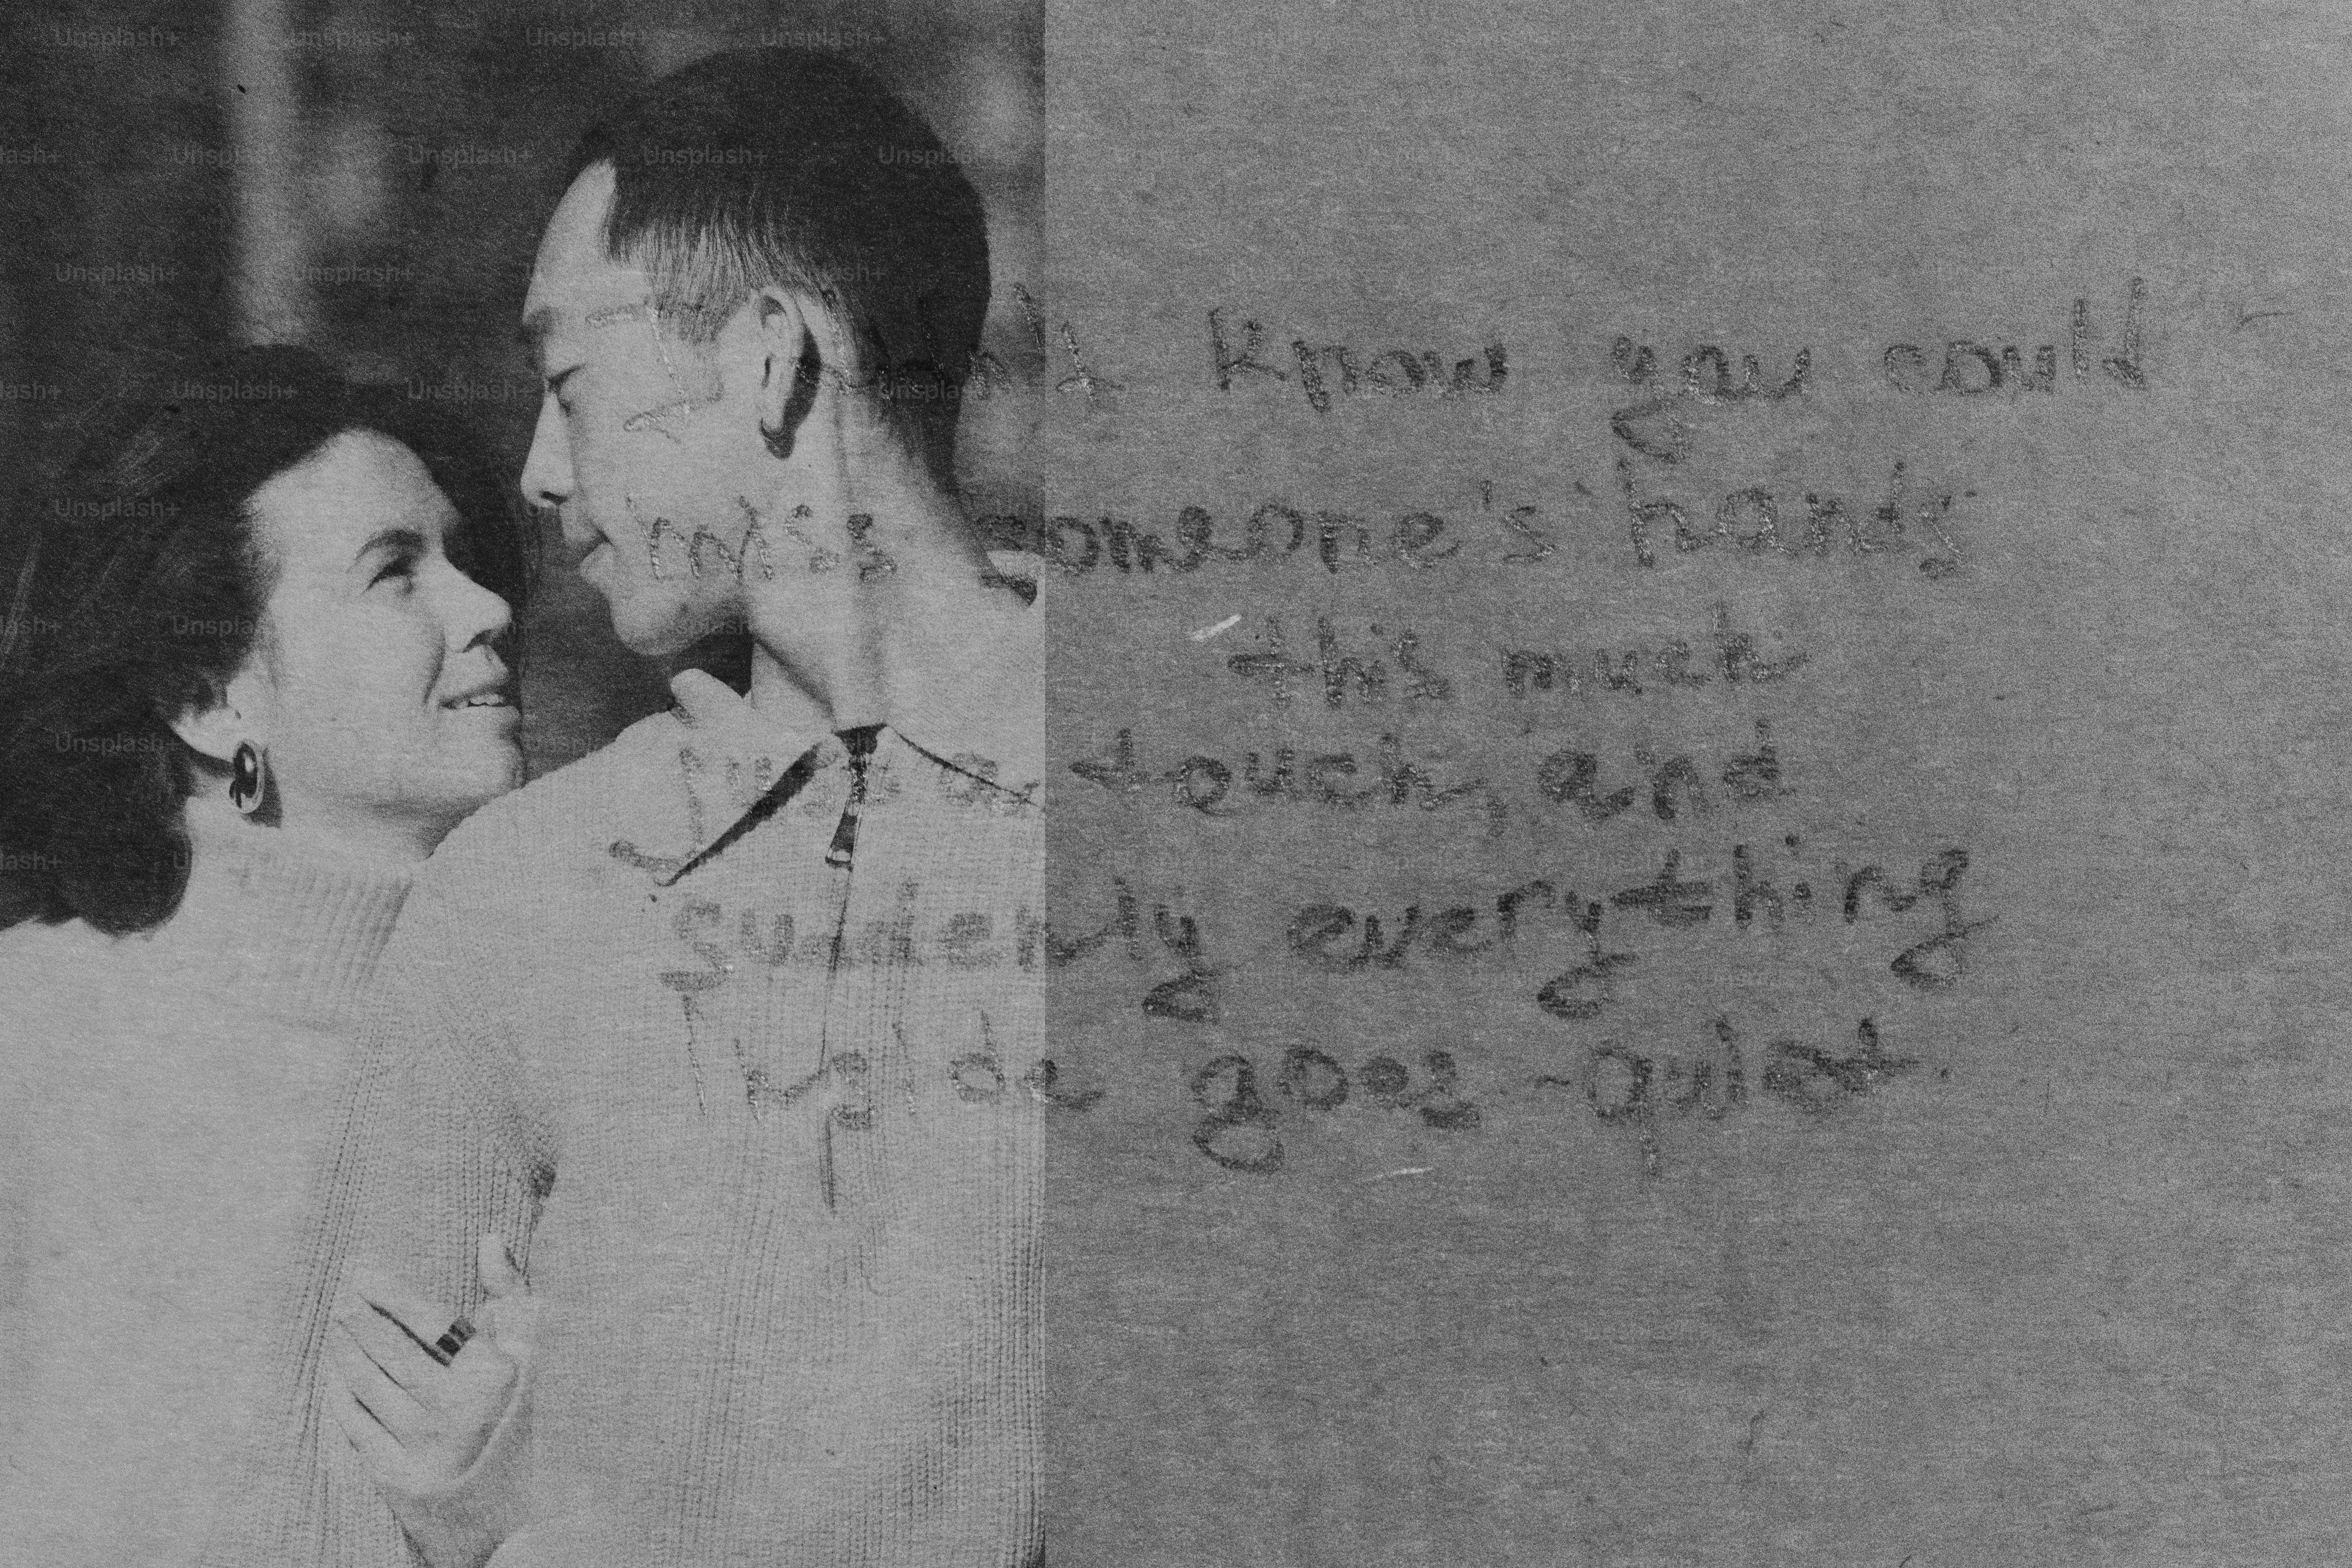 I didn't know you could
miss someone's hands
this much
Just a touch, and
suddenly everything
inside goes quiet.